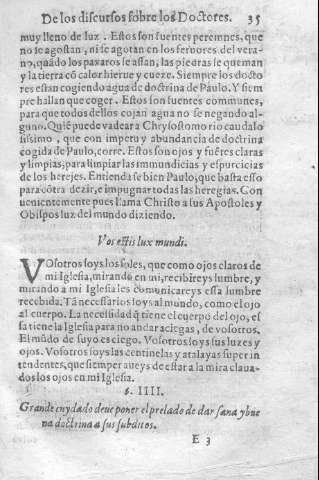 De los discursos sobre los Doctores. 35
muy lleno de luz. Estos son fuentes peremnes, que
no se agostan, ni se agotan en los feruores del vera-
no, quãdo los paxaros se assan, las piedras se queman
y la tierra cõ calor hierue y cueze. Siempre los docto
res estan cogiendo agua de doctrina de Paulo. Y siem
pre hallan que coger. Estos son fuentes communes,
para que todos dellos cojan agua no se negando al-
guno. Quiẽ puede vadear a Chrysostomo rio caudalo
sissimo, que con impetu y abundancia de doctrina
cogida de Paulo, corre. Estos son ojos y fuẽtes claras
y limpias, para limpiar las immundicias y espurcicias
de los herejes. Entienda se bien Paulo, que basta esso
para cõtra dezir, e impugnar todas las heregias. Con
uenientemente pues llama Christo a sus Apostoles y
Obispos luz del mundo diziendo.
Vos estis lux mundi.
VOsotros soys los soles, que como ojos claros de
mi Iglesia, mirando en mi, recibireys lumbre, y
mirando a mi Iglesia les comunicareys essa lumbre
recebida. Tã necessarios soys al mundo, como el ojo
al cuerpo. La necessidad q̃ tiene el cuerpo del ojo, es
sa tiene la Iglesia para no andar a ciegas, de vosotros.
El mũdo de suyo es ciego. Vosotros soys sus luzes y
ojos. Vosotros soys las centinelas y atalayas superin
tendentes, que siemper aueys de estar a la mira claua-
dos los ojos en mi Iglesia.
§. IIII.
Grande cuydado deue poner el prelado de dar sana y bue
na doctrina a sus subditos.
E 3